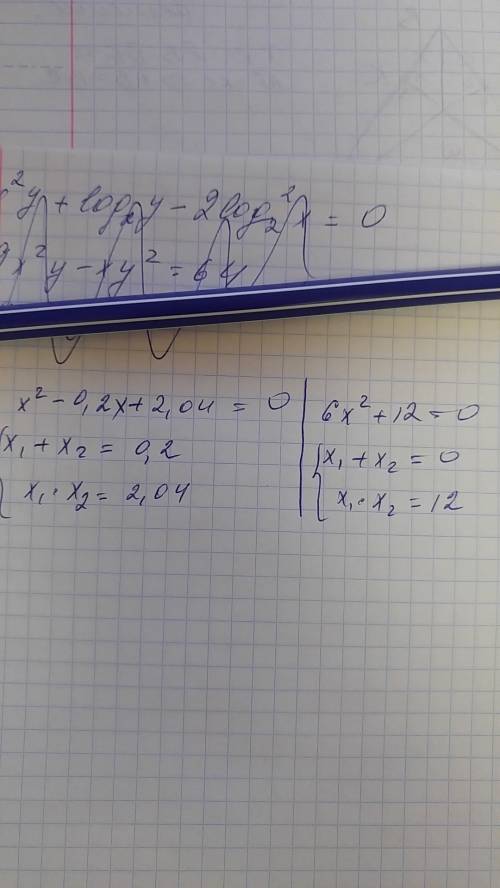 ²y + log₂y - 2log₂²x = 0
x²y - xy² = 64
x² - 0,2x + 2,04 = 0
x₁ + x₂ = 0,2
x₁ · x₂ = 2,04
6x² + 12 = 0
x₁ + x₂ = 0
x₁ · x₂ = 12